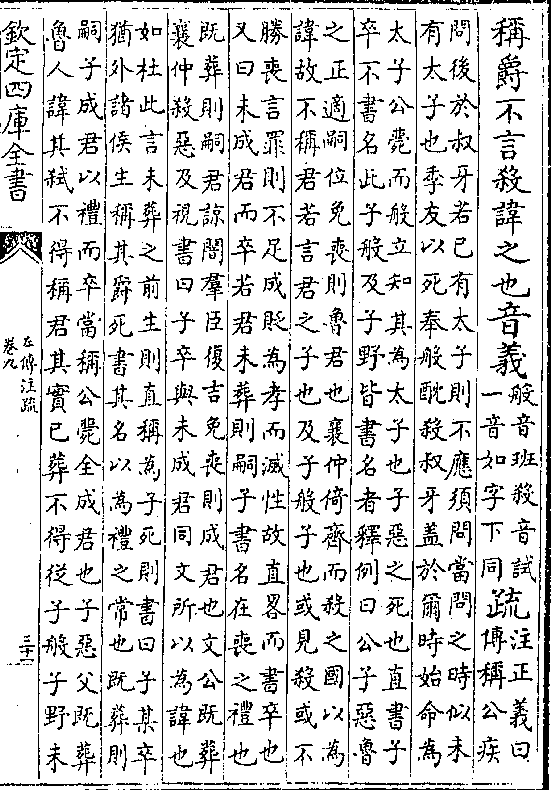 稱爵不言殺諱之也音義般音班殺音試
一音如字下同疏注正義曰
傳稱公疾
問後於叔牙若已有太子則不應須問當問之時似未
有太子也季友以死奉般酖殺叔牙蓋於爾時始命為
太子公薨而般立知其為太子也子惡之死也直書子
卒不書名此子般及子野皆書名者釋例曰公子惡魯
之正適嗣位免喪則魯君也襄仲倚齊而殺之國以為
諱故不稱君若言君之子也及子般子也或見殺或不
勝喪言罪則不足成貶為孝而滅性故直畧而書卒也
又曰未成君而卒若君未葬則嗣子書名在喪之禮也
既葬則嗣君諒闇羣臣復吉免喪則成君也文公既葬
襄仲殺惡及視書曰子卒與未成君同文所以為諱也
如杜此言未葬之前生則直稱為子死則書曰子某卒
猶外諸侯生稱其爵死書其名以為禮之常也既葬則
嗣子成君以禮而卒當稱公薨全成君也子惡父既葬
魯人諱其弑不得稱君其實已葬不得從子般子野未
欽定四庫全書
左傳注疏
卷九
三十一